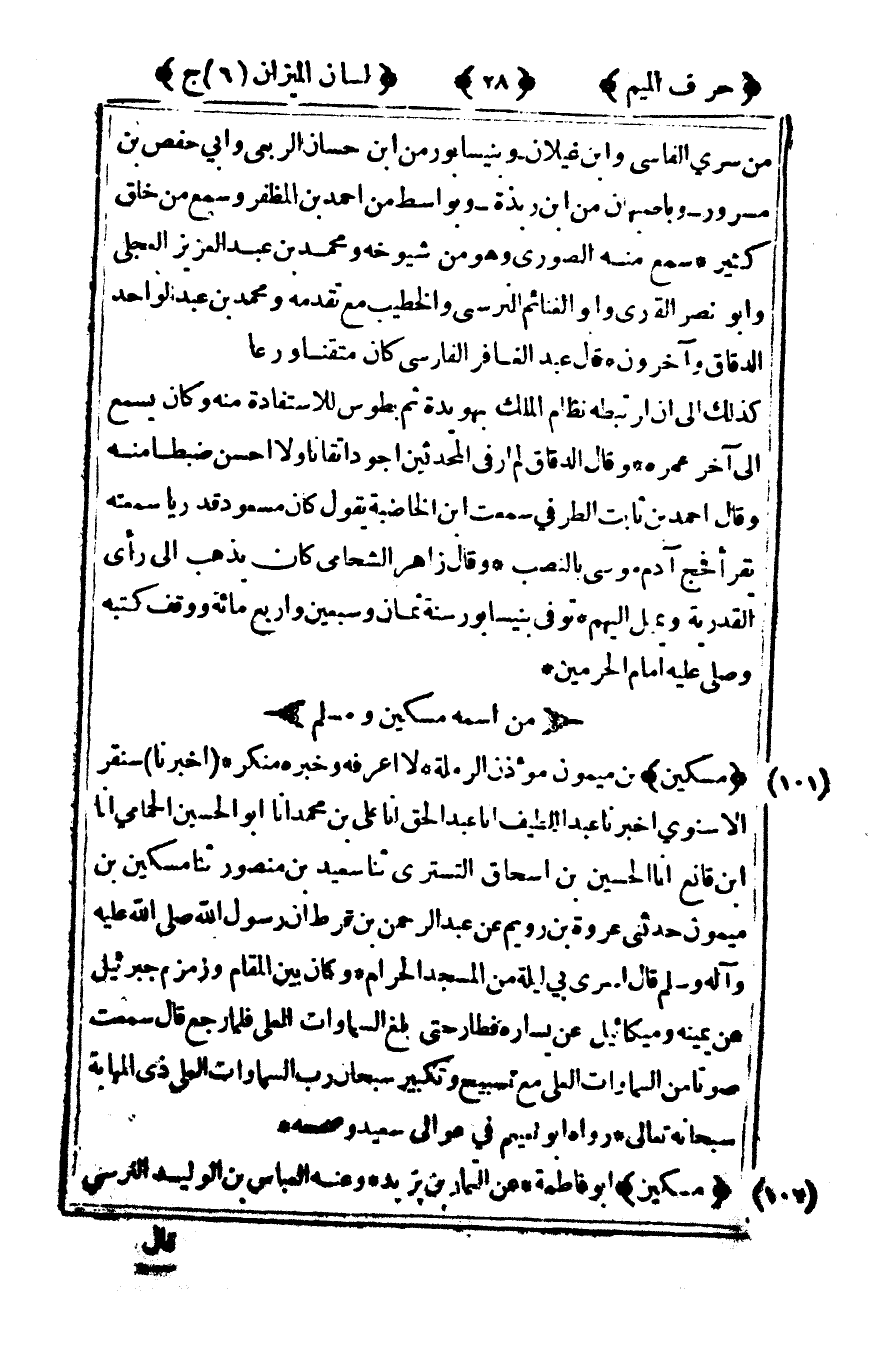 ﴿ حرف الميم ﴾ ﴿ ٢٨ ﴾ ﴿ لسان الميزان (٦) ج ﴾
من سري الفاسى وابن غيلان ـ وبنيسابور من ابن حسان الربعى وابي حفص بن
مسرور ـ وباصبهان من ابن ريذة ـ وبواسط من احمد بن المظفر وسمع من خلق
كثير * سمع منه الصورى وهو من شيوخه ومحمد بن عبد العزيز العجلى
وابو نصر القارى وابو الغنائم النرسى والخطيب مع تقدمه ومحمد بن عبد الواحد
الدقاق وآخرون * قال عبد الغافر الفارسى كان متقنا ورعا
كذلك الى ان ارتبطه نظام الملك ثم بطوس للاستفادة منه وكان يسمع
الى آخر عمره * وقال الدقاق لم ار فى المحدثين اجود اتقانا ولا احسن ضبطا منه
وقال احمد بن ثابت الطرفي سمعت ابن الخاضبة يقول كان مسعود قدريا سمعته
يقرأ فحج آدم موسى بالنصب * وقال زاهر الشحامى كان يذهب الى رأى
القدرية ويميل اليهم * توفى بنيسابور سنة ثمان وسبعين واربع مائة ووقف كتبه
وصلى عليه امام الحرمين *
من اسمه مسكين ومسلم
(١٠١) ﴿ مسكين ﴾ بن ميمون مؤذن الرملة * لا اعرفه وخبره منكر * (اخبرنا) سنقر
الاسنوي اخبرنا عبد اللطيف انا عبد الحق انا على بن محمد انا ابو الحسين الحمامي انا
ابن قانع انا الحسين بن اسحاق التسترى ثنا سعيد بن منصور ثنا مسكين بن
ميمون حدثنى عروة بن رويم عن عبد الرحمن بن قرط ان رسول الله صلى الله عليه
وآله وسلم قال اسرى بي ليلة من المسجد الحرام * وكان بين المقام وزمزم جبرئيل
عن يمينه وميكائيل عن يساره فطار حتى بلغ السماوات العلى فلما رجع قال سمعت
صوتا من السماوات العلى مع تسبيح وتكبير سبحان رب السماوات العلى ذى المهابة
سبحانه تعالى * رواه ابو نعيم في عوالى سعيد وصححه *
(١٠٢) ﴿ مسكين ﴾ ابو فاطمة * عن اليمان بن يزيد * وعنه العباس بن الوليد النرسي
قال